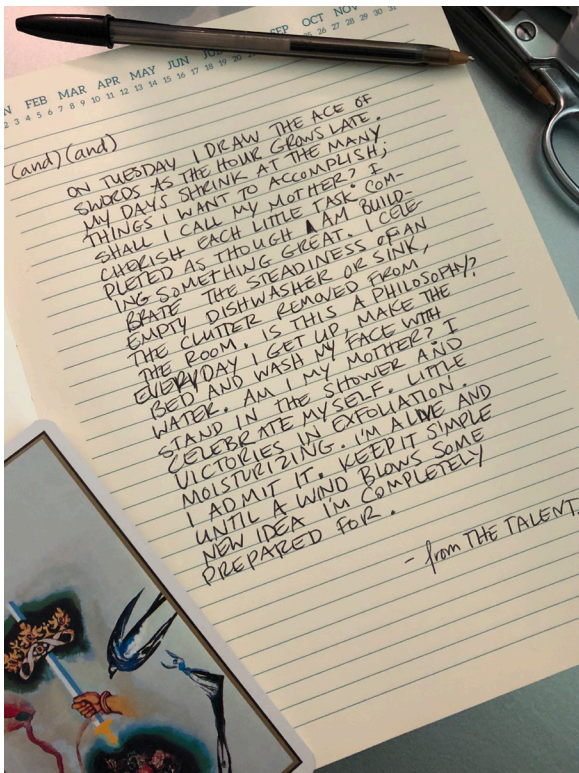 N FEB MAR APR MAY JUN JUL SEP OCT NOV
2 3 4 5 6 7 8 9 10 11 12 13 14 15 16 17 18 19 20 25 26 27 28 29 30 31
(and) (and)
ON TUESDAY I DRAW THE ACE OF
SWORDS AS THE HOUR GROWS LATE.
MY DAYS SHRINK AT THE MANY
THINGS I WANT TO ACCOMPLISH;
SHALL I CALL MY MOTHER? I
CHERISH EACH LITTLE TASK COM-
PLETED AS THOUGH I AM BUILD-
ING SOMETHING GREAT. I CELE-
BRATE THE STEADINESS OF AN
EMPTY DISHWASHER OR SINK,
THE CLUTTER REMOVED FROM
THE ROOM. IS THIS A PHILOSOPHY?
EVERYDAY I GET UP, MAKE THE
BED AND WASH MY FACE WITH
WATER. AM I MY MOTHER? I
STAND IN THE SHOWER AND
CELEBRATE MYSELF. LITTLE
VICTORIES IN EXFOLIATION.
MOISTURIZING. I'M ALIVE AND
I ADMIT IT. KEEP IT SIMPLE
UNTIL A WIND BLOWS SOME
NEW IDEA I'M COMPLETELY
PREPARED FOR.
- from THE TALENT.